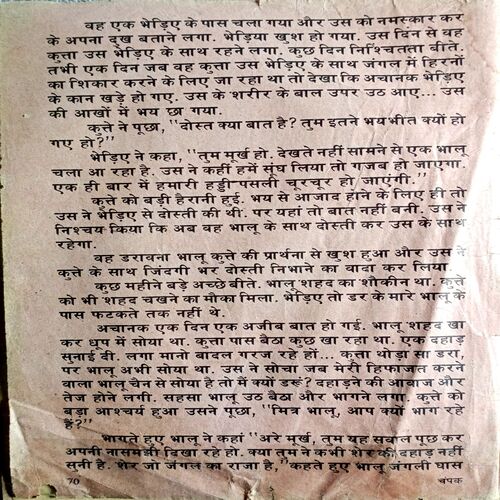 वह एक भेड़िए के पास चला गया और उस को नमस्कार कर
के अपना दुख बताने लगा. भेड़िया खुश हो गया. उस दिन से वह
कुत्ता उस भेड़िए के साथ रहने लगा. कुछ दिन निश्चिंतता बीते.
तभी एक दिन जब वह कुत्ता उस भेड़िए के साथ जंगल में हिरनों
का शिकार करने के लिए जा रहा था तो देखा कि अचानक भेड़िए
के कान खड़े हो गए. उस के शरीर के बाल उपर उठ आए... उस
की आखों में भय छा गया.
कुत्ते ने पूछा, ''दोस्त क्या बात है? तुम इतने भयभीत क्यों हो
गए हो?''
भेड़िए ने कहा, ''तुम मूर्ख हो. देखते नहीं सामने से एक भालू
चला आ रहा है. उस ने कहीं हमें सूंघ लिया तो गजब हो जाएगा.
एक ही बार में हमारी हड्डी-पसली चूरचूर हो जाएंगी.''
कुत्ते को बड़ी हैरानी हुई. भय से आजाद होने के लिए ही तो
उस ने भेड़िए से दोस्ती की थी. पर यहां तो बात नहीं बनी. उस ने
निश्चय किया कि अब वह भालू के साथ दोस्ती कर उस के साथ
रहेगा.
वह डरावना भालू कुत्ते की प्रार्थना से खुश हुआ और उस ने
कुत्ते के साथ जिंदगी भर दोस्ती निभाने का वादा कर लिया.
कुछ महीने बड़े अच्छे बीते. भालू शहद का शौकीन था. कुत्ते
को भी शहद चखने का मौका मिला. भेड़िए तो डर के मारे भालू के
पास फटकते तक नहीं थे.
अचानक एक दिन एक अजीब बात हो गई. भालू शहद खा
कर धूप में सोया था. कुत्ता पास बैठा कुछ खा रहा था. एक दहाड़
सुनाई दी. लगा मानो बादल गरज रहे हों... कुत्ता थोड़ा सा डरा,
पर भालू अभी सोया था. उस ने सोचा जब मेरी हिफाजत करने
वाला भालू चैन से सोया है तो मैं क्यों डरूं? दहाड़ने की आवाज और
तेज होने लगी. सहसा भालू उठ बैठा और भागने लगा. कुत्ते को
बड़ा आश्चर्य हुआ उसने पूछा, ''मित्र भालू, आप क्यों भाग रहे
हैं?''
भागते हुए भालू ने कहा ''अरे मूर्ख, तुम यह सवाल पूछ कर
अपनी नासमझी दिखा रहे हो. क्या तुम ने कभी शेर की दहाड़ नहीं
सुनी है. शेर जो जंगल का राजा है,''कहते हुए भालू जंगली घास
70 चंपक